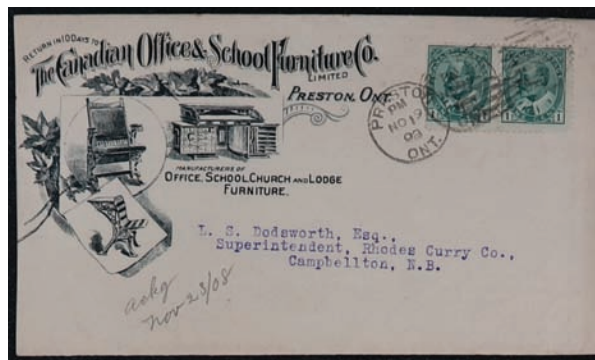 RETURN IN 10 DAYS TO
The Canadian Office & School Furniture Co.
LIMITED
PRESTON, ONT.
MANUFACTURERS OF
OFFICE, SCHOOL, CHURCH AND LODGE
FURNITURE.
PRESTON
PM
NO 19
08
ONT.
1 1
L. S. Dodsworth, Esq.,
Superintendent, Rhodes Curry Co.,
Campbellton, N.B.
ackg
Nov 23/08